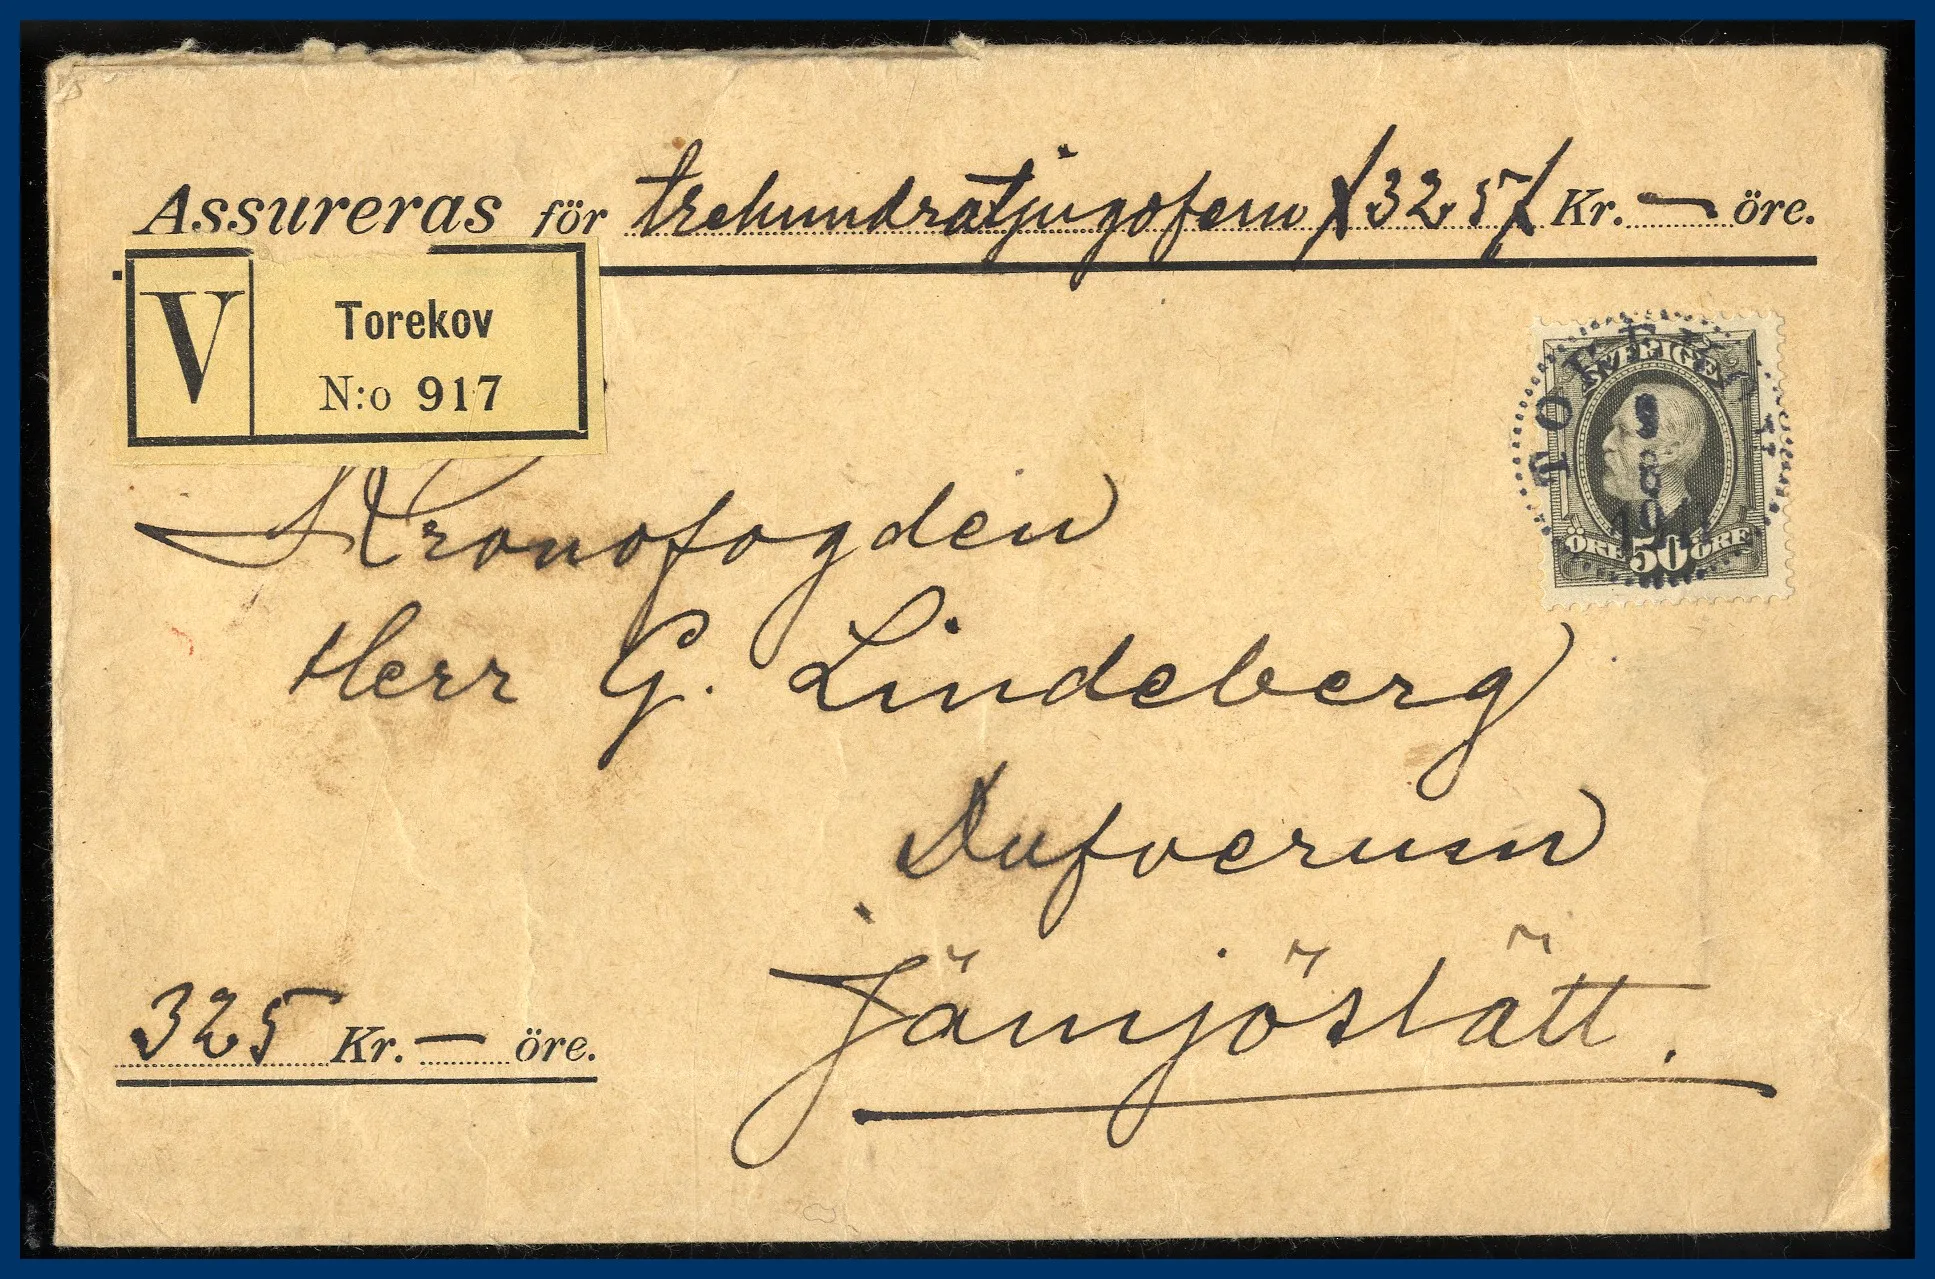 Assureras för trehundratjugofem /325/ Kr. — öre.
V
Torekov
N:o 917
SVERIGE
ÖRE 50 ÖRE
Kronofogden
Herr G. Lindeberg
Dufverum
Jämjöslätt.
325 Kr. — öre.